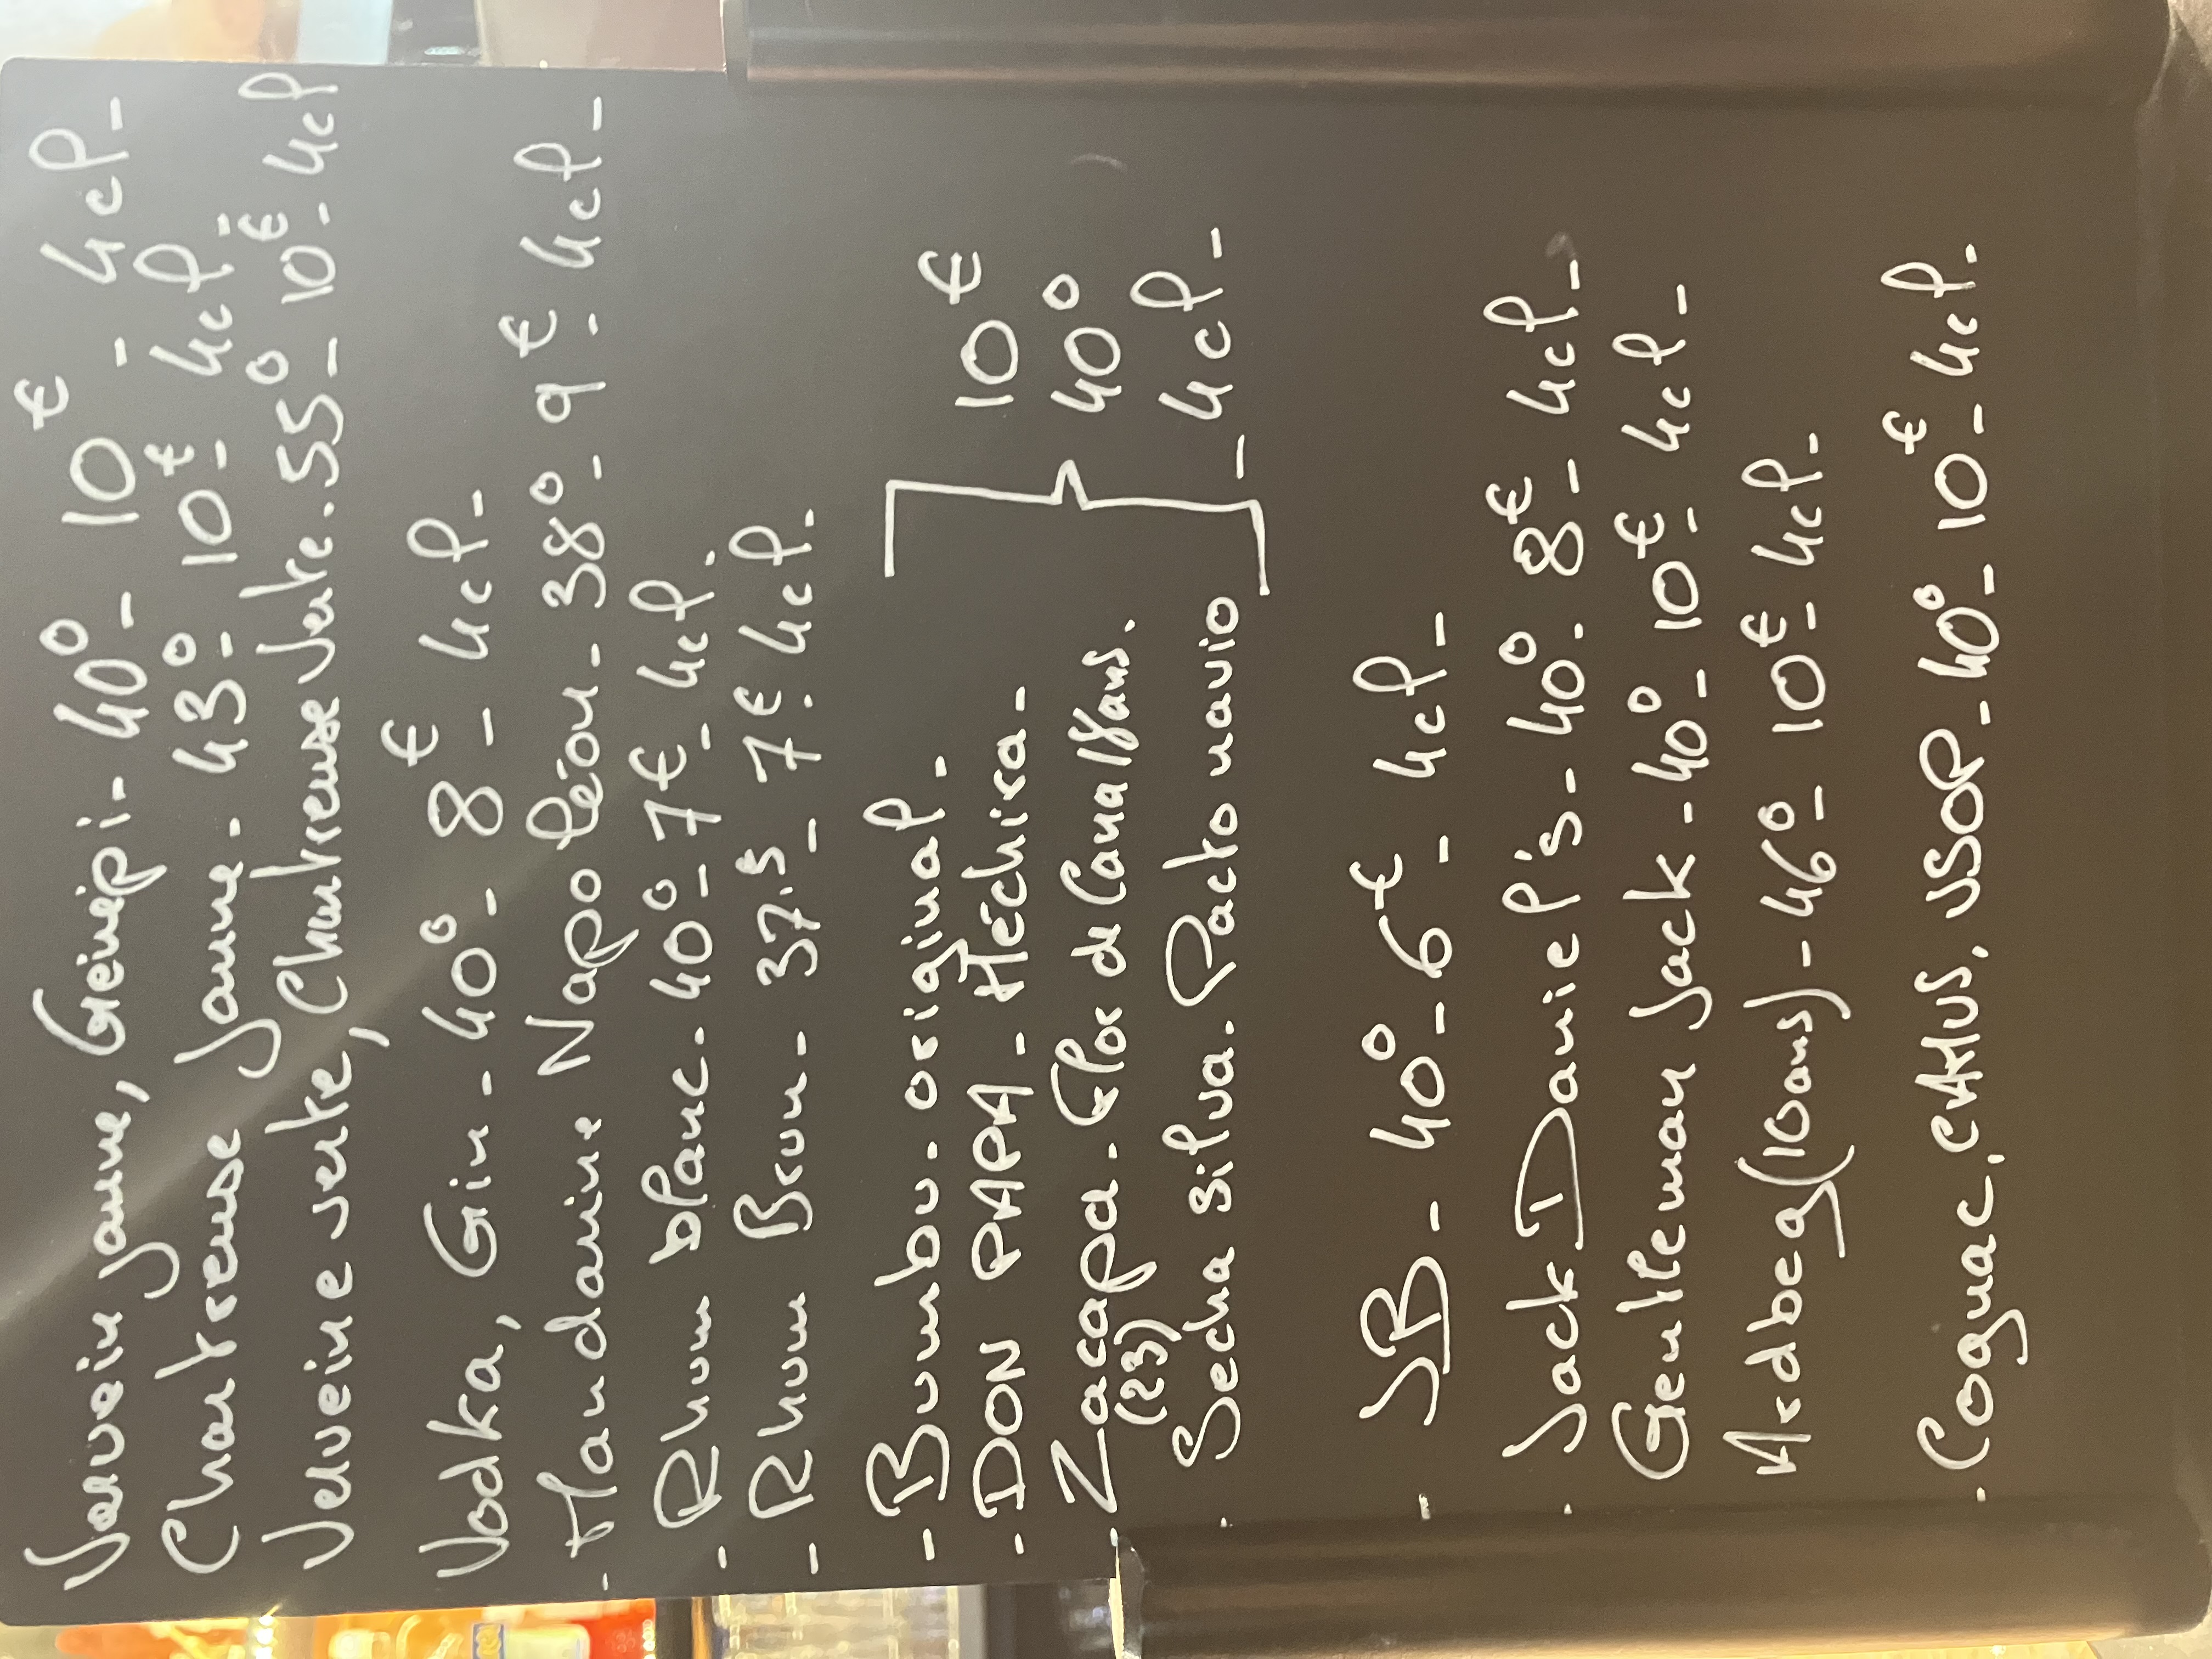 Verveine Jaune, Génépi - 40° - 10€ - 4cl -
Chartreuse Jaune - 43° - 10€ - 4cl -
Verveine verte, Chartreuse Verte. 55° - 10€ - 4cl
Vodka, Gin - 40° - 8€ - 4cl -
- Mandarine Napoléon - 38° - 9€ - 4cl -
- Rhum blanc - 40° - 7€ - 4cl.
- Rhum Brun - 37.5 - 7€. 4cl.
- Bumbu - original -
- DON PAPA - Méchica -
- Zacapa - Flor de Cana 18ans.
(23)
- Secha Silva. Pacto navio
10€
40°
- 4cl -
- JB - 40° - 6€ - 4cl -
- Jack Daniel's - 40° - 8€ - 4cl -
Gentleman Jack - 40° - 10€ - 4cl -
Ardbeg (10ans) - 46° - 10€ - 4cl -
- Cognac, CAMUS. VSOP - 40° - 10€ - 4cl.